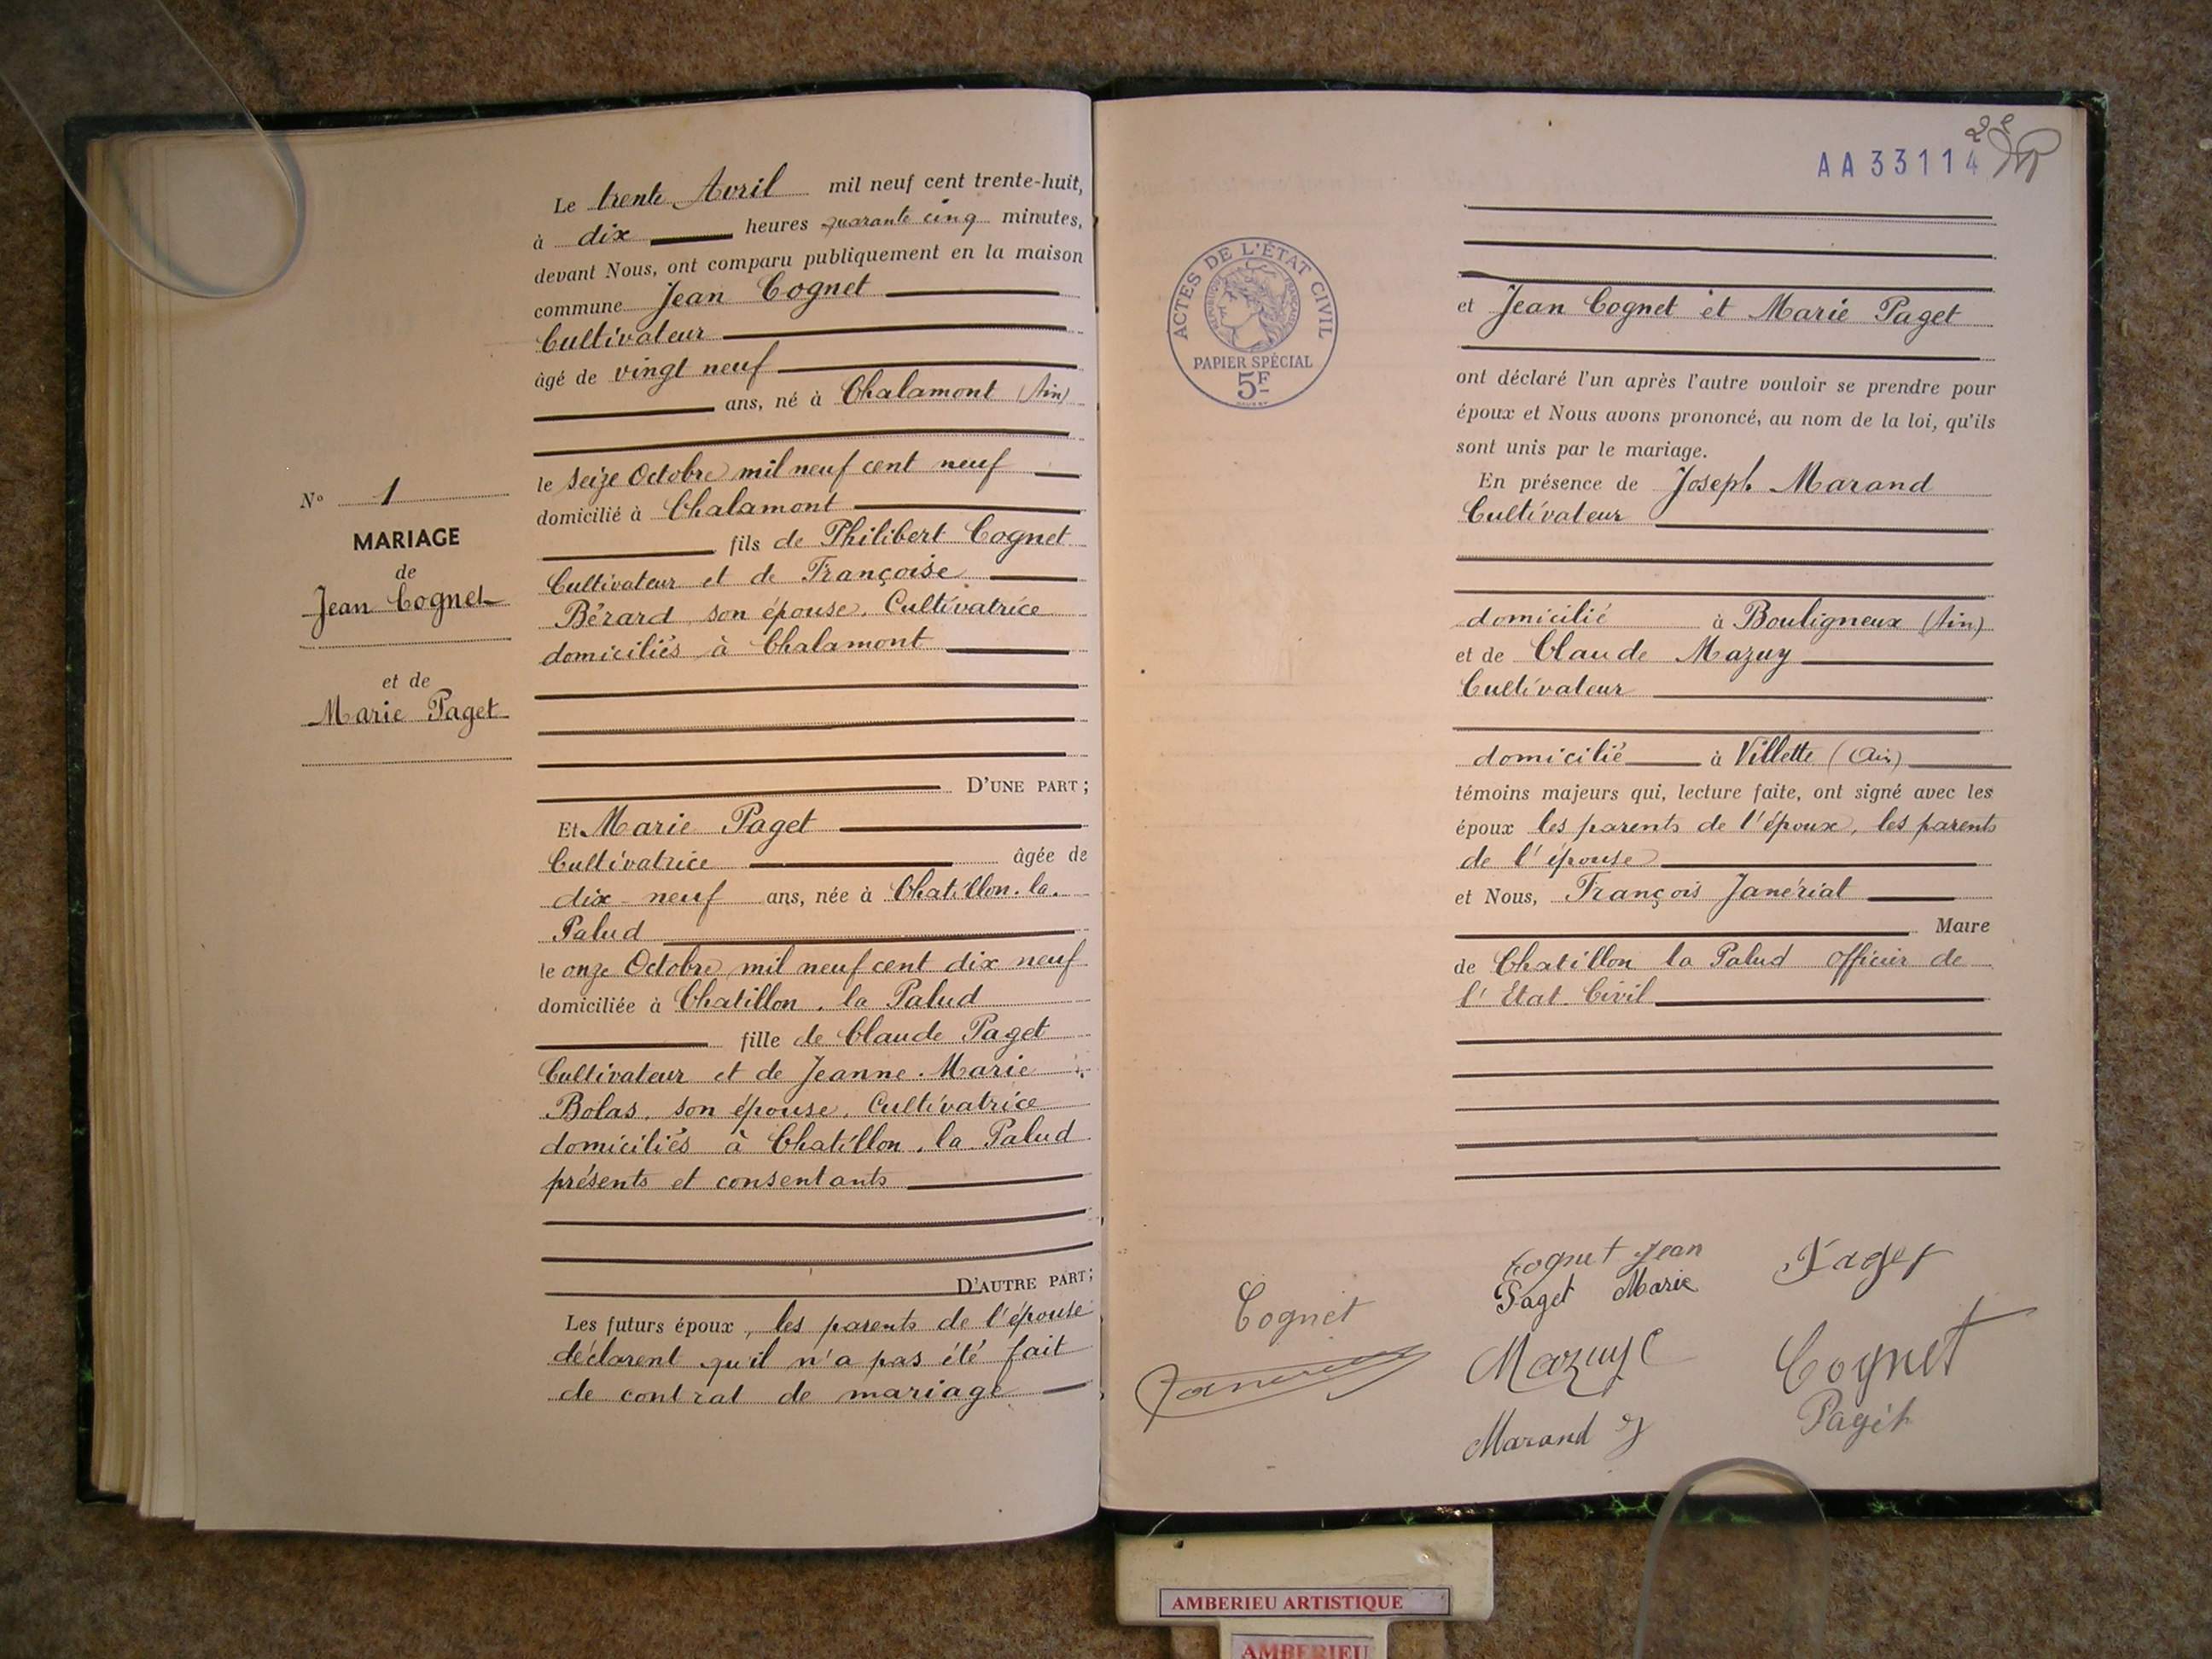 N° 1
MARIAGE
de
Jean Cognet
et de
Marie Paget
Le trente Avril mil neuf cent trente-huit,
à dix heures quarante cinq minutes,
devant Nous, ont comparu publiquement en la maison
commune Jean Cognet
Cultivateur
âgé de vingt neuf
ans, né à Chalamont (Ain)
le seize Octobre mil neuf cent neuf
domicilié à Chalamont
fils de Philibert Cognet
Cultivateur et de Françoise
Bérard son épouse, Cultivatrice
domiciliés à Chalamont
D'UNE PART;
Et Marie Paget
Cultivatrice âgée de
dix-neuf ans, née à Chatillon-la-
Palud
le onze Octobre mil neuf cent dix neuf
domiciliée à Chatillon-la Palud
fille de Claude Paget
Cultivateur et de Jeanne-Marie
Bolas, son épouse, Cultivatrice
domiciliés à Chatillon-la Palud
présents et consentants
D'AUTRE PART;
Les futurs époux, les parents de l'épouse
déclarent qu'il n'a pas été fait
de contrat de mariage
AA33114
ACTES DE L'ÉTAT CIVIL
RÉPUBLIQUE FRANÇAISE
PAPIER SPÉCIAL
5F
et Jean Cognet et Marie Paget
ont déclaré l'un après l'autre vouloir se prendre pour
époux et Nous avons prononcé, au nom de la loi, qu'ils
sont unis par le mariage.
En présence de Joseph Marand
Cultivateur
domicilié à Bouligneux (Ain)
et de Claude Mazuy
Cultivateur
domicilié à Villette (Ain)
témoins majeurs qui, lecture faite, ont signé avec les
époux les parents de l'époux, les parents
de l'épouse
et Nous, François Janérial
Maire
de Chatillon la Palud officier de
l'Etat-Civil
Cognet Jean
Paget Marie
Paget
Cognet
Mazuy C
Cognet
Paget
Marand J
AMBERIEU ARTISTIQUE
AMBERIEU